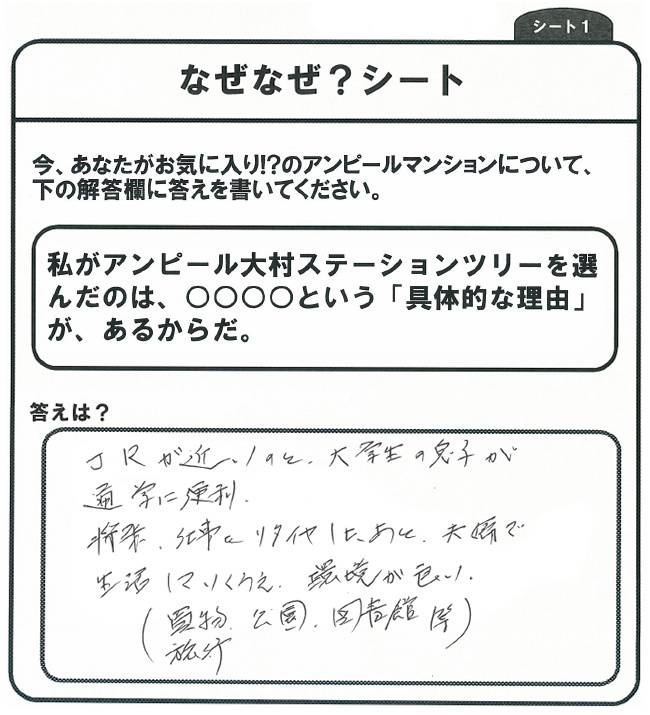 シート1
なぜなぜ?シート
今、あなたがお気に入り!?のアンピールマンションについて、
下の解答欄に答えを書いてください。
私がアンピール大村ステーションツリーを選
んだのは、○○○○という「具体的な理由」
が、あるからだ。
答えは?
JRが近いのと、大学生の息子が
通学に便利.
将来、仕事をリタイヤしたあと、夫婦で
生活していくうえ、環境が良い.
(買物、公園、図書館 等)
旅行